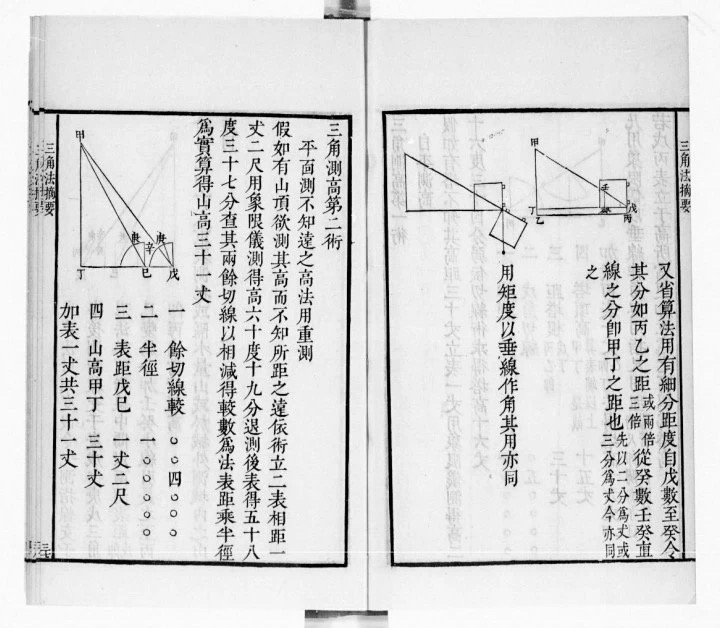 三角法摘要
又省算法用有細分距度自戊數至癸令
其分如丙乙之距或兩倍三倍從癸數壬癸直
線之分卽甲丁之距也先以二分爲丈或三分爲丈今亦同
之
甲
丁
乙
壬
癸
戊
丙
用矩度以垂線作角其用亦同
三角測高第二術
平面測不知遠之高法用重測
假如有山頂欲測其高而不知所距之遠依術立二表相距一
丈二尺用象限儀測得高六十度十九分退測後表得五十八
度三十七分查其兩餘切線以相減得較數爲法表距乘半徑
爲實算得山高三十一丈
甲
丁
巳
辛
庚
戊
一 餘切線較 〇〇四〇〇〇
二 半徑 一〇〇〇〇〇
三 表距戊巳 一丈二尺
四 山高甲丁 三十丈
加表一丈共三十一丈
三角法摘要